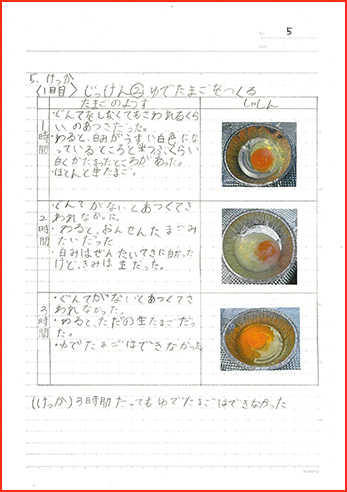 5
5. けっか
〈1日目〉 じっけん② ゆでたまごをつくる
たまごのようす
しゃしん
1時間
・ぐんてをしなくてもさわれるくら
いのあつさだった。
・わると、白みがうすい白色にな
っているところと米つぶくらい
白くかたまったところがあった。
・ほとんど生たまご。
2時間
・ぐんてがないとあつくてさ
われなかった。
・わると、おんせんたまごみ
たいだった
・白みはぜんたいてきに白かった
けど、きみは生だった。
3時間
・ぐんてがないとあつくてさ
われなかった。
・わると、ただの生たまごだっ
た。
・ゆでたまごはできなかった
(けっか)3時間たってもゆでたまごはできなかった